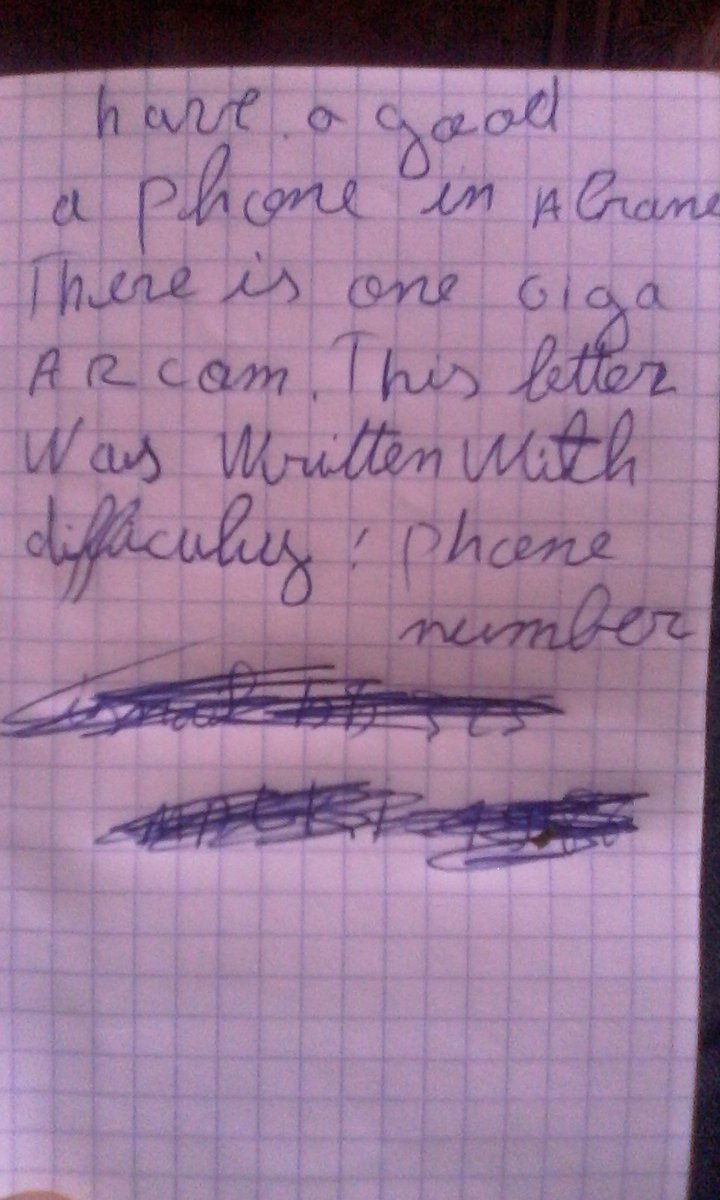 have a good
a phone in
There is one Giga
ARcom. This letter
Was Written With
diffaculuy : phone
number